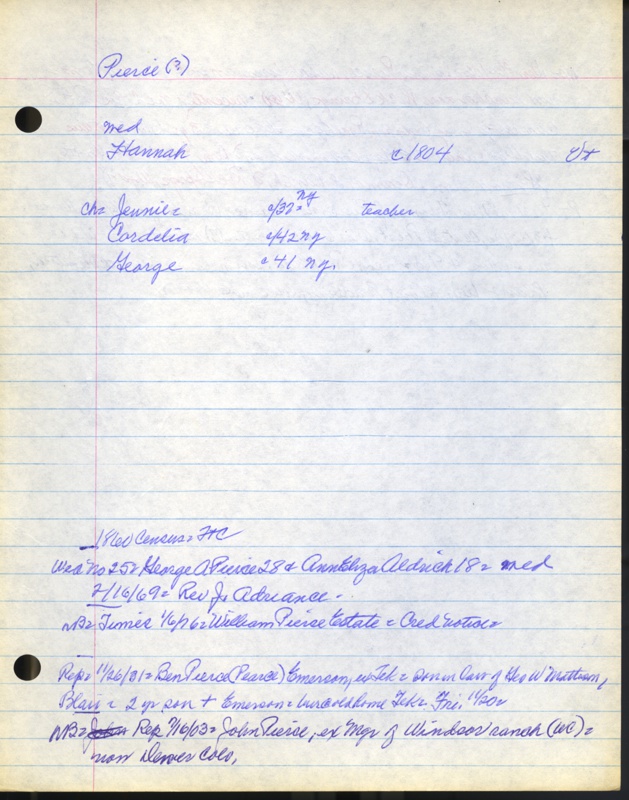 Pierce (?)
med
Hannah c 1804 Vt
Ch= Jennie= c/32= ny teacher
Cordelia c/42 ny
George c 41 ny.
1860 Census=
Wed no 25= George A Pierce 28 & Ann Eliza Aldrich 18= med
2/16/69= Rev J. Adriance.
NB= Times 1/6/76= William Pierce Estate= Cred notice=
Rep= 11/26/01= Ben Pierce (Pearce) Emerson, Tek= Geo W Mattison,
Blair= 2 yr son + Emerson= Tek= Fri, 11/20=
NB= John Rep 7/16/03= John Pierce, ex Mgr of Windsor ranch (WC)=
now Denver Colo,